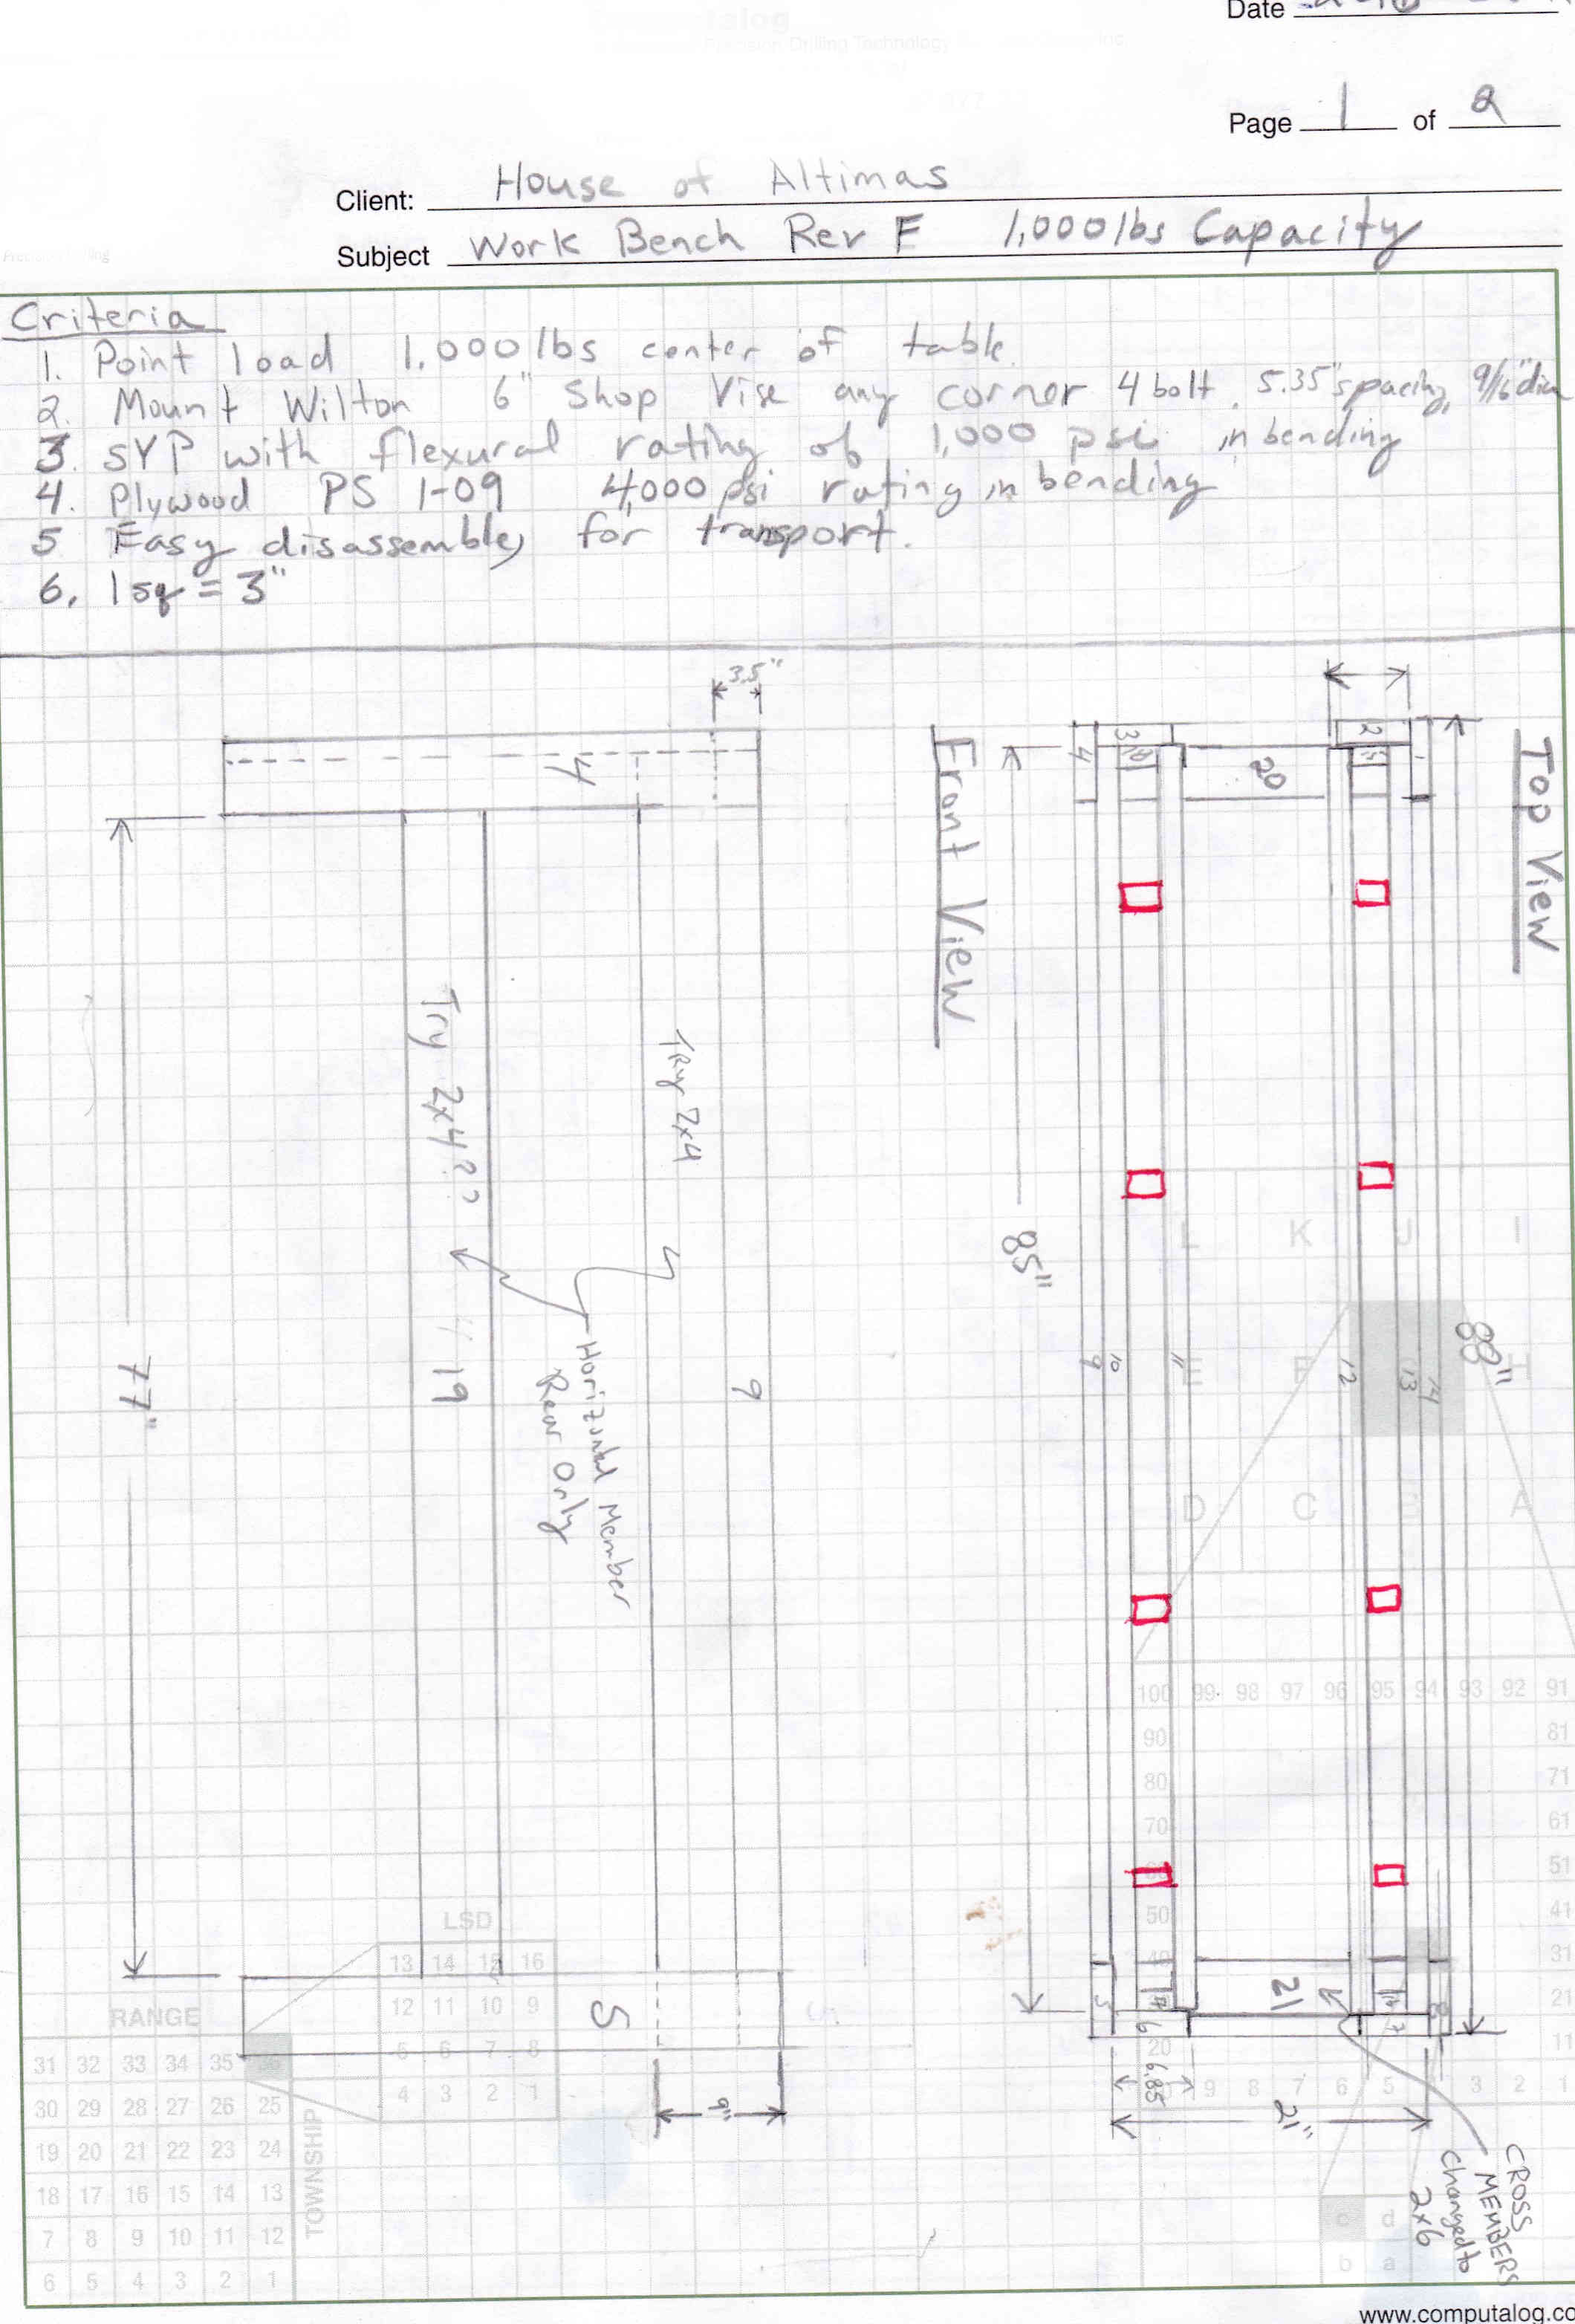 Date
Page 1 of 2
Client: House of Altimas
Subject Work Bench Rev F 1,000 lbs Capacity
Criteria
1. Point load 1,000 lbs center of table.
2. Mount Wilton 6" Shop Vise any corner 4 bolt, 5.35" spacing, 9/16" dia
3. SYP with flexural rating of 1,000 psi in bending
4. Plywood PS 1-09 4,000 psi rating in bending
5 Easy disassembly for transport.
6. 1 sq = 3"
Top View
88"
85"
1
2
3
4
20
9
10
11
12
13
14
21
5
6
7
8
6.85
21"
CROSS
MEMBERS
Changed to
2x6
Front View
3.5"
4
Try 2x4
Try 2x4??
Horizontal Member
Rear Only
9
19
77"
5
9"
L K J I
E F H
D C B A
100 99 98 97 96 95 94 93 92 91
90 81
80 71
70 61
51
50 41
40 31
21
20 11
9 8 7 6 5 3 2 1
c d
b a
LSD
13 14 15 16
12 11 10 9
5 6 7 8
4 3 2 1
RANGE
TOWNSHIP
31 32 33 34 35 36
30 29 28 27 26 25
19 20 21 22 23 24
18 17 16 15 14 13
7 8 9 10 11 12
6 5 4 3 2 1
www.computalog.co